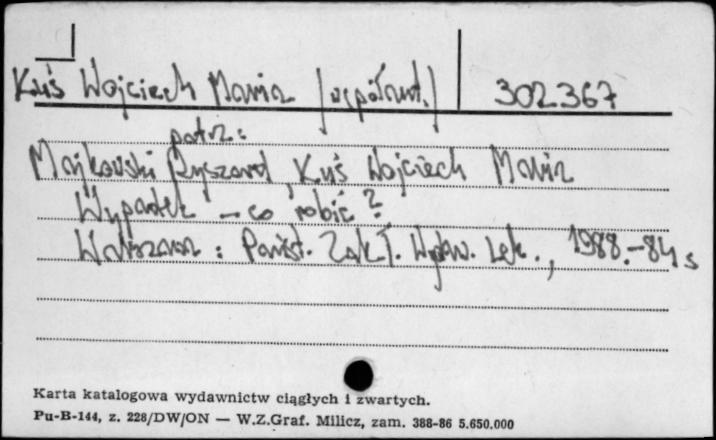 Kuś Wojciech Maria [współaut.] 302367
patrz:
Majkowski Ryszard, Kuś Wojciech Maria
Wypadek – co robić?
Warszawa : Państ. Zakł. Wydaw. Lek., 1988. – 84 s
Karta katalogowa wydawnictw ciągłych i zwartych.
Pu-B-144, z. 228/DW/ON — W.Z.Graf. Milicz, zam. 388-86 5.650.000